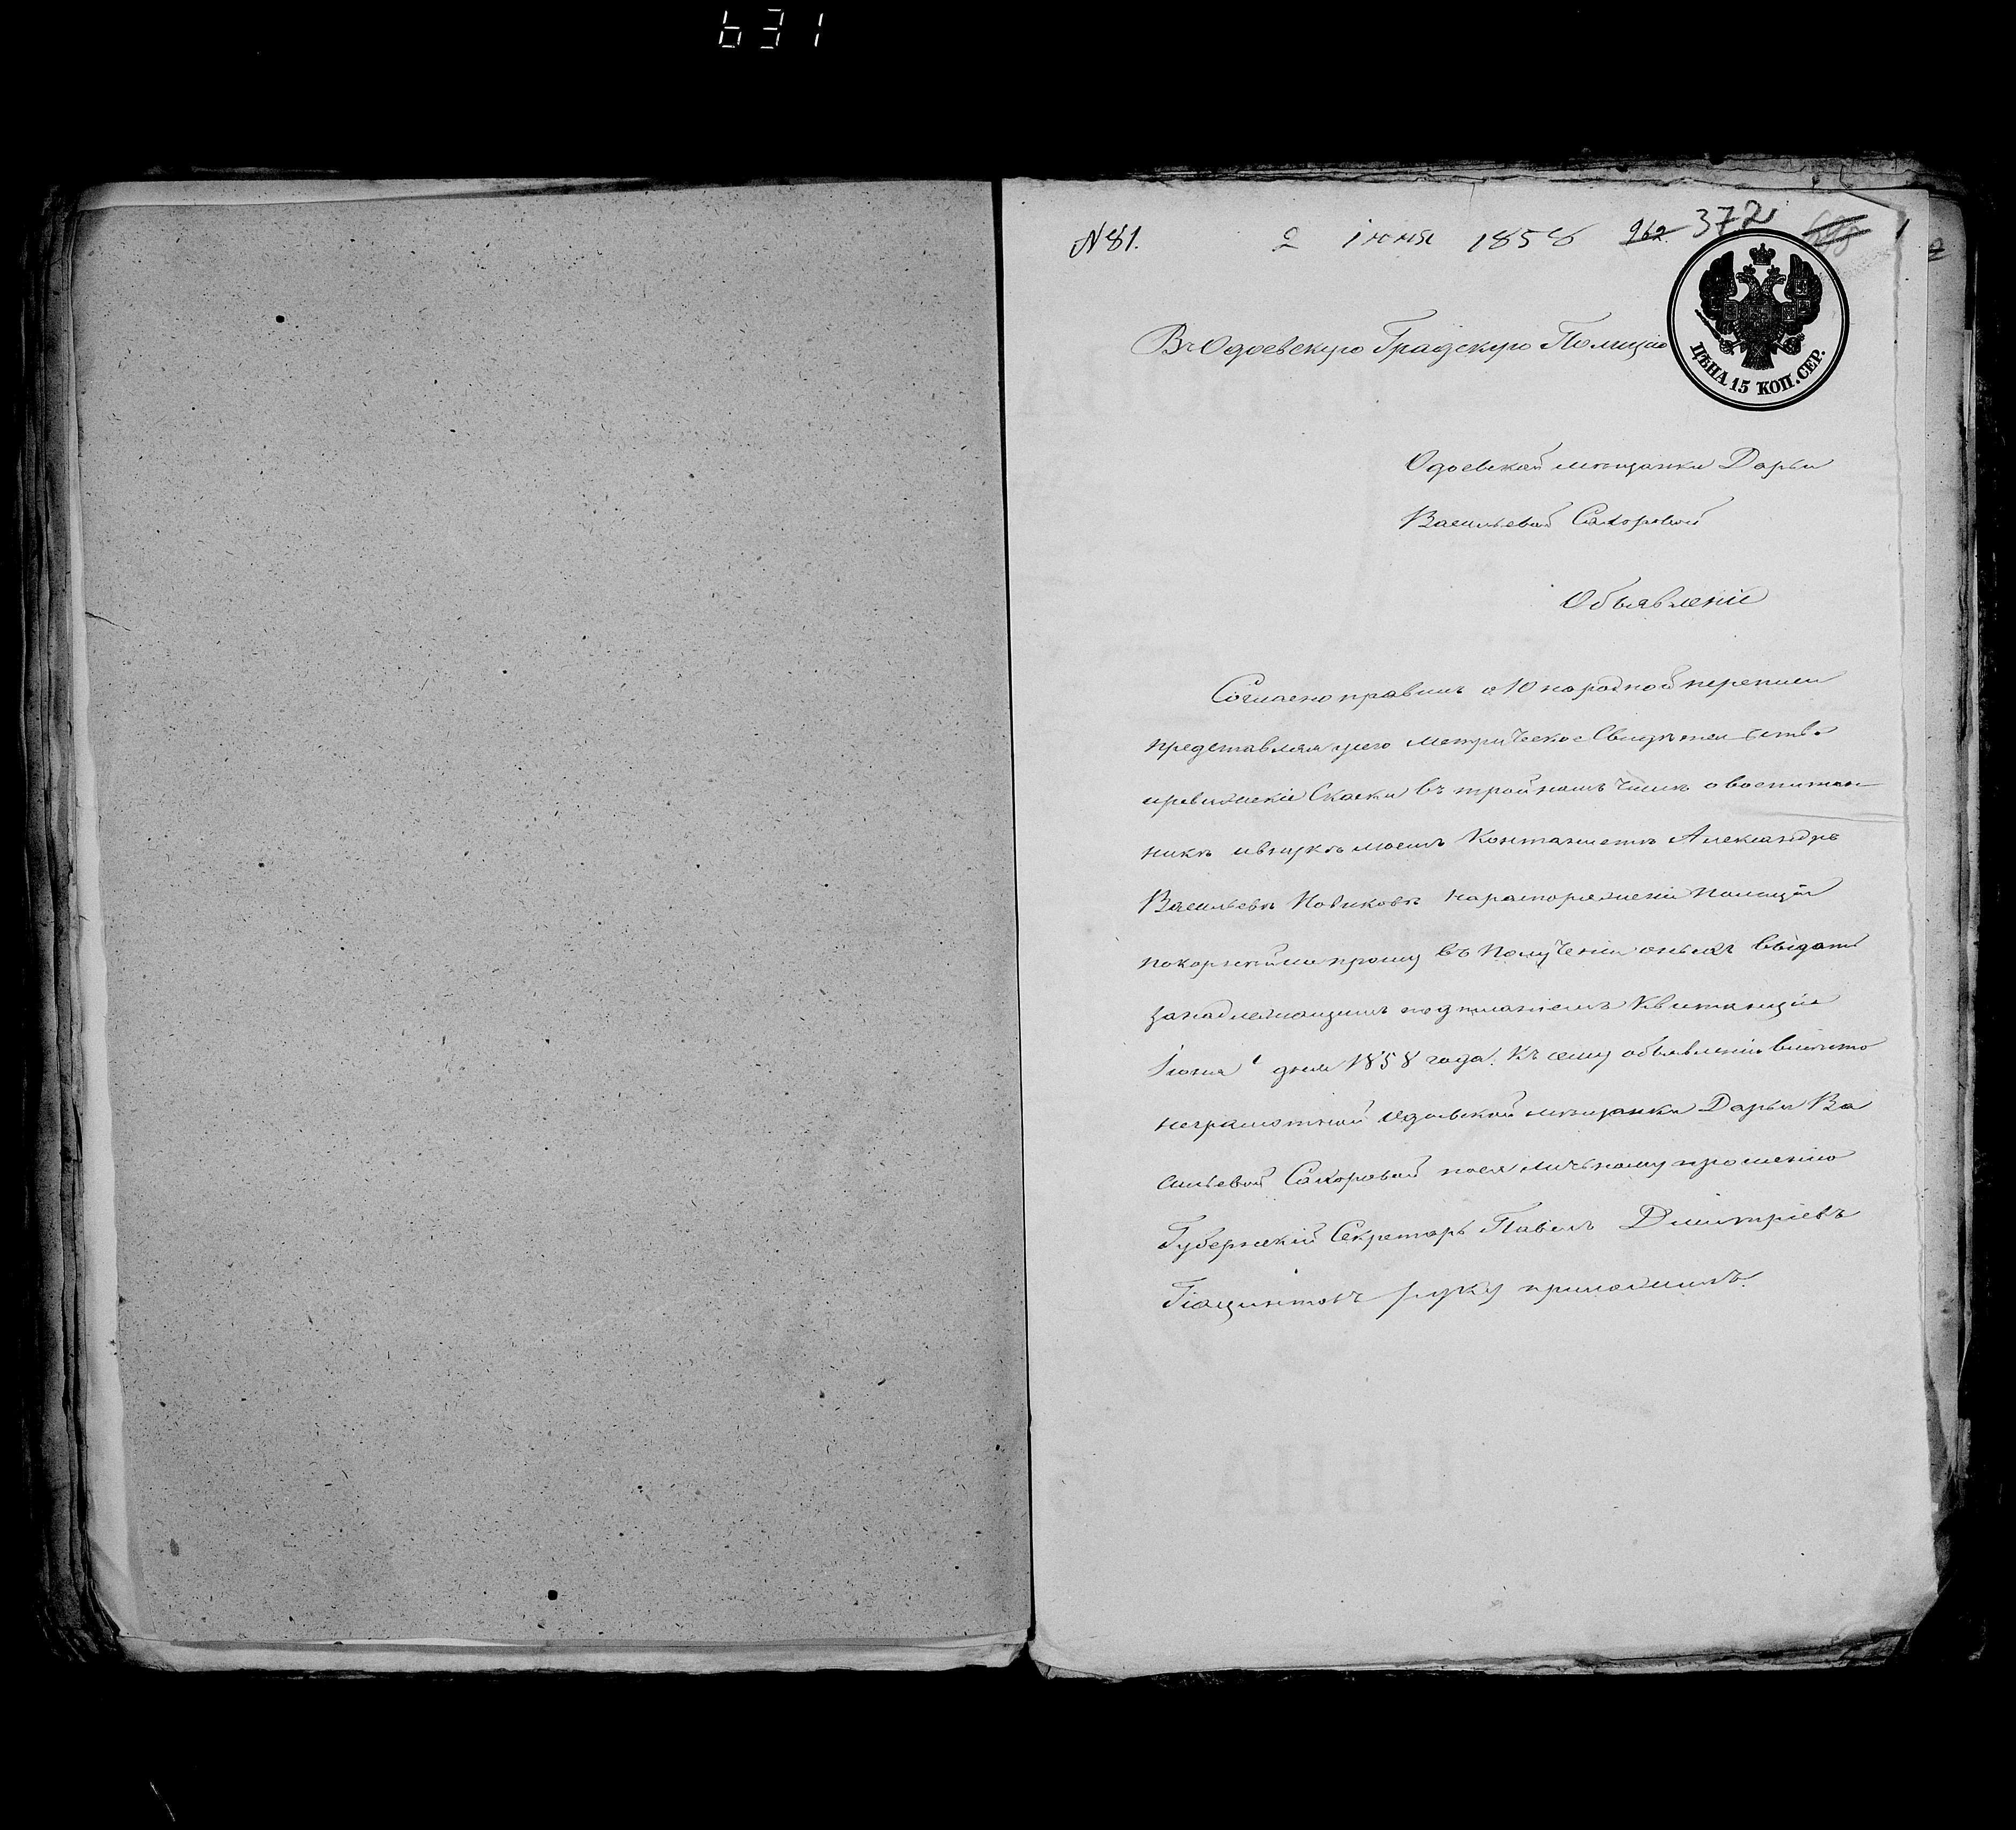 631
№ 81.
2 іюня 1858
962.
372
ЦѢНА 15 КОП. СЕР.
Въ Одоевскую Градскую Полицію
Одоевской мѣщанки Дарьи
Васильевой Сахоровой
Объявленіе
Согласно правилъ о 10 народной переписи
представляя у сего метрическое Свидѣтельство
и ревизскіе Скаски въ тройномъ числѣ о воспитан-
никѣ и внукѣ моемъ Контанистѣ Александрѣ
Васильевѣ Новиковѣ на распоряженіе полиціи
покорнейше прошу въ полученіи оныхъ выдать
за надлежащимъ подписаніемъ Квитанціи
Іюня 1 дня 1858 года. Къ сему объявленію вмѣсто
неграмотной Одоевской мѣщанки Дарьи Ва
сильевой Сахоровой по ея личному прошению
Губернскій Секретарь Павелъ Дмитріевъ
Гіацинтовъ руку приложилъ.